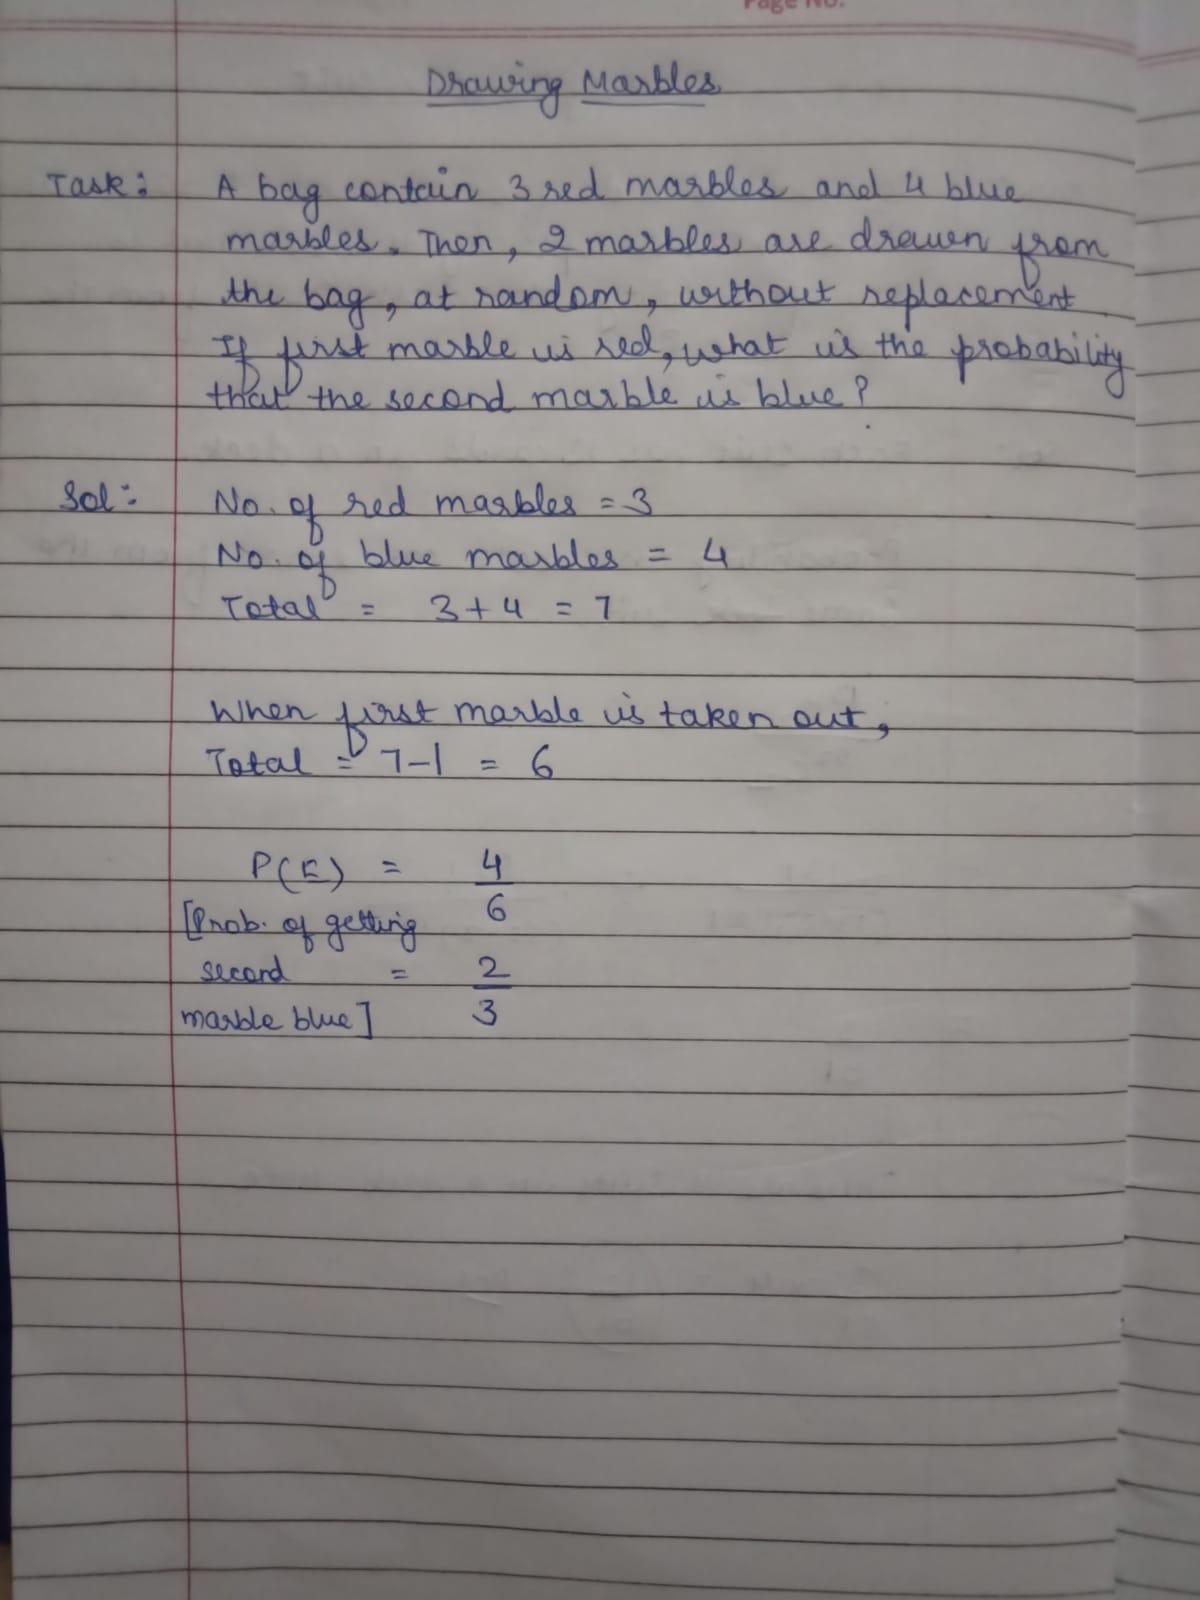 Page No.
Drawing Marbles
Task: A bag contain 3 red marbles and 4 blue
marbles. Then, 2 marbles are drawn from
the bag, at random, without replacement
If first marble is red, what is the probability
that the second marble is blue?
Sol: No. of red marbles = 3
No. of blue marbles = 4
Total = 3+4 = 7
When first marble is taken out,
Total = 7-1 = 6
P(E) = 4/6
[Prob. of getting
second = 2/3
marble blue]